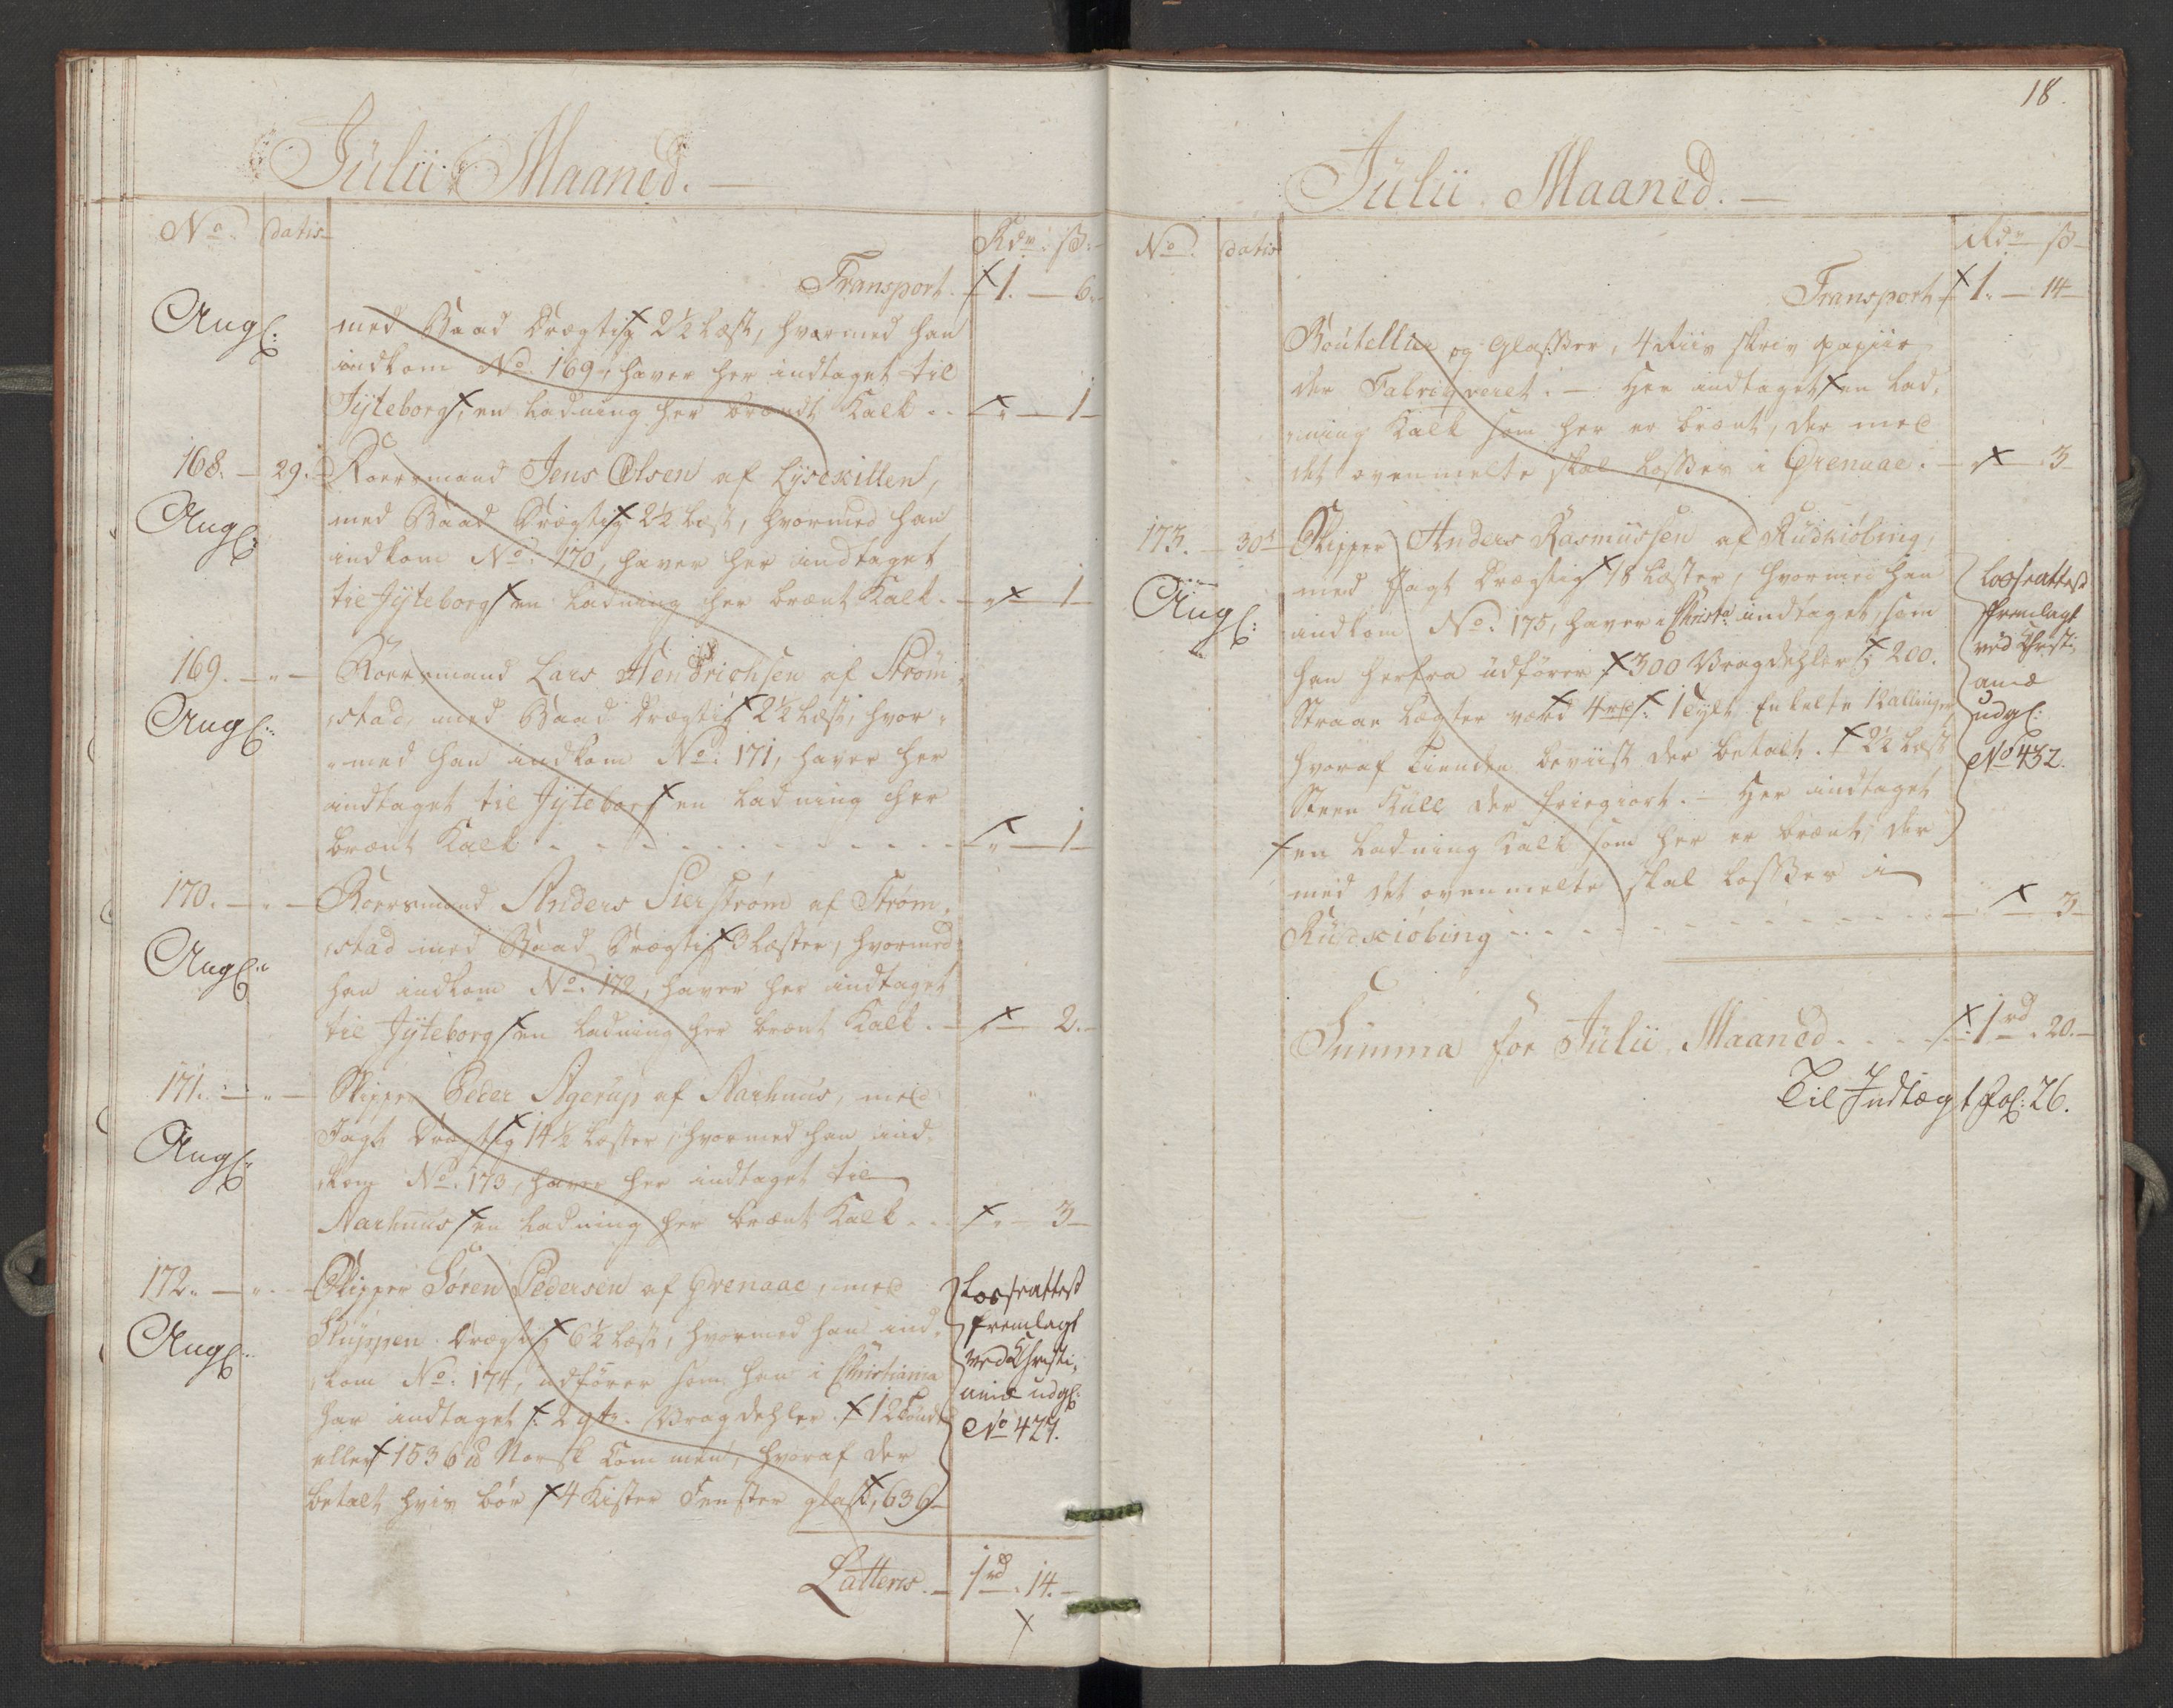 Julii Maaned.
No. datis
Rdr. ß.
Transport. 1. — 6.
Angl:
med Baad Drægtig 2½ Læst, hvormed han
indkom No. 169, haver her indtaget til
Jÿteborg, en Ladning her brændt Kalk . . — " — 1 —
168. — 29.
Roersmand Jens Olsen af Lÿsekillen,
Angl:
med Baad Drægtig 2½ Læst, hvormed han
indkom No. 170, haver her indtaget
til Jÿteborg en Ladning her brænt Kalk. — " — 1 —
169. — " —
Roersmand Lars Hendrichsen af Strøm-
Angl:
stad, med Baad Drægtig 2½ Læst, hvor-
med han indkom No. 171, haver her
indtaget til Jÿteborg en Ladning her
brænt Kalk - - - - - - — " — 1 —
170. — " —
Roersmand Anders Pierstrøm af Strøm-
stad med Baad Drægtig 3 Læster, hvormed
Angl:
han indkom No. 172, haver her indtaget
til Jÿteborg en Ladning her brænt Kalk. — " — 2. —
171. — " —
Skipper Peder Agerup af Aarhuus, med
Angl:
Jagt Drægtig 14½ Læster, hvormed han ind-
kom No. 173, haver her indtaget til
Aarhuus en Ladning her brænt Kalk . . " — 3 —
172. — " —
Skipper Søren Pedersen af Grenaae, med
Angl:
Skuppen Drægtig 6½ Læst, hvormed han ind-
kom No. 174, udfører som han i Christiania
har indtaget 2 Vragdehler. 12 Tønder
eller 1536 Norsk Commen, hvoraf der
betalt hvis bør 4 Kister Fenster glas, 636
Losseattest
fremlagt
ved Christi-
aniæ udgl:
No 427.
Latteris. — 1rd. 14. —
18.
Julii Maaned. —
No. datis
Rdr ß
Transport 1. — 14 —
Boutellier og Glasser, 4 Riis skriv papiir
der Fabriqveret. — Her indtaget en Lad-
ning Kalk som her er brænt, der med
det ovenmelte skal Losses i Grenaae. — " — 3 —
173. — 30t
Skipper Anders Rasmussen af Rudkiøbing,
Angl:
med Jagt Drægtig 18 Læster, hvormed han
indkom No. 175, haver i Christa: indtaget, som
han herfra udfører 300 Vragdehler 200.
Straae Lægter værd 4 rd 1 Tylt Enkelte Kallinger
hvoraf Tienden beviist der betalt. 2½ Læst
Steen Kull der friegiort. — Her indtaget
en Ladning Kalk som her er brænt, der
med det ovenmelte skal losses i
Rudkiøbing - - - - - - - — 3 —
Losseattest
fremlagt
ved Christi-
aniæ
udgl:
No 432.
Summa for Julii Maaned - - - - 1rd. 20. —
Til Indtægt Fol: 26.